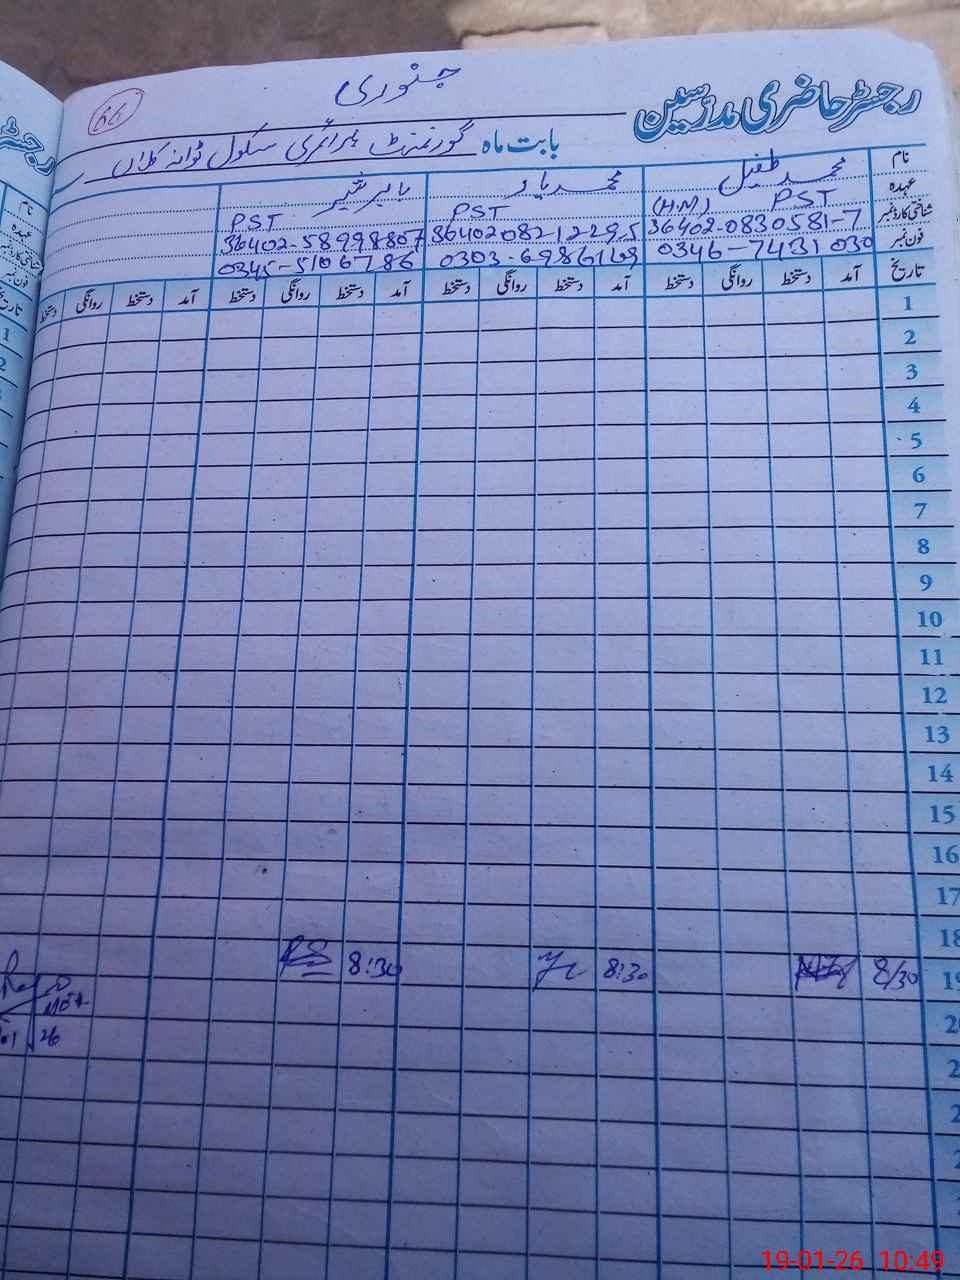 جنوری
66
رجسٹر حاضری مدرسین
بابت ماہ گورنمنٹ پرائمری سکول
نام محمد طفیل محمد یار بابر شبیر
عہدہ PST (H.M) PST PST
شناختی کارڈ نمبر 36402-0830581-7 36402-58998807
فون نمبر 0346-7431030 0303-6986169 0345-5106786
تاریخ آمد دستخط روانگی دستخط آمد دستخط روانگی دستخط آمد دستخط روانگی دستخط آمد دستخط روانگی دستخط
1
2
3
4
5
6
7
8
9
10
11
12
13
14
15
16
17
18
19 8/30 8:30 8:30
26
19-01-26 10:49